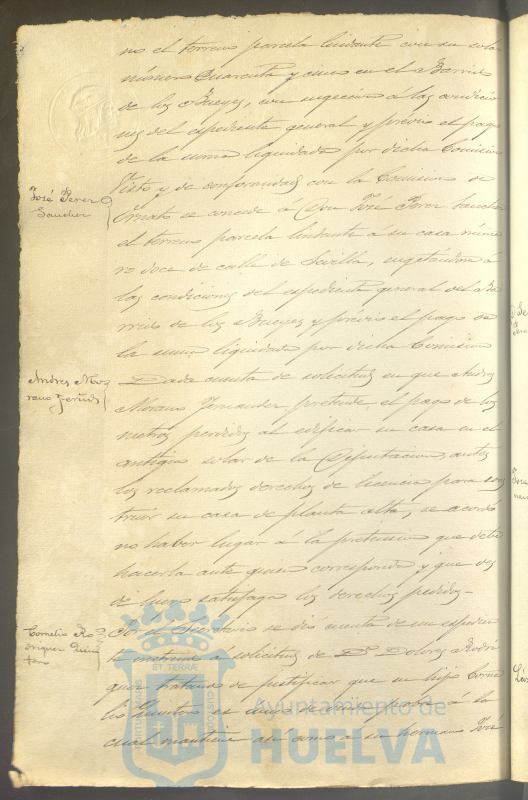 no el terreno parcela lindante con su solar
número cuarenta y cinco en el Barrio
de los Bueyes, con sugecion á las condicio
nes del espediente general y previo el pago
de la suma liquidada por dicha Comision
José Perez
Sanchez
Visto y de conformidad con la Comision de
Ornato se concede á Don José Perez Sanchez
el terreno parcela lindante á su casa núme
ro doce de calle de Sevilla, sugetándose á
las condiciones del espediente general del Ba
rrio de los Bueyes y prévio el pago de
la suma liquidada por dicha Comision
Andres Mo
reno Fernds
Dada cuenta de solicitud en que Andres
Moreno Fernandez pretende el pago de los
metros perdidos al edificar su casa en el
antiguo solar de la Diputacion, antes
los reclamados derechos de licencia para cons
truir su casa de planta alta, se acordó
no haber lugar a la pretension que debe
hacerla ante quien corresponda y que des
de luego satisfaga los derechos pedidos.
Cornelio Ro
driguez Quin
tero
Por el Secretario se dió cuenta de un espedien
te instruido á solicitud de Dª Dolores Rodri
guez tratando de justificar que su hijo Corne
lio Quintero es unico de madre pobre á la
cual mantiene asi como a su hermano José
ET TERRA
Ayuntamiento de
HUELVA